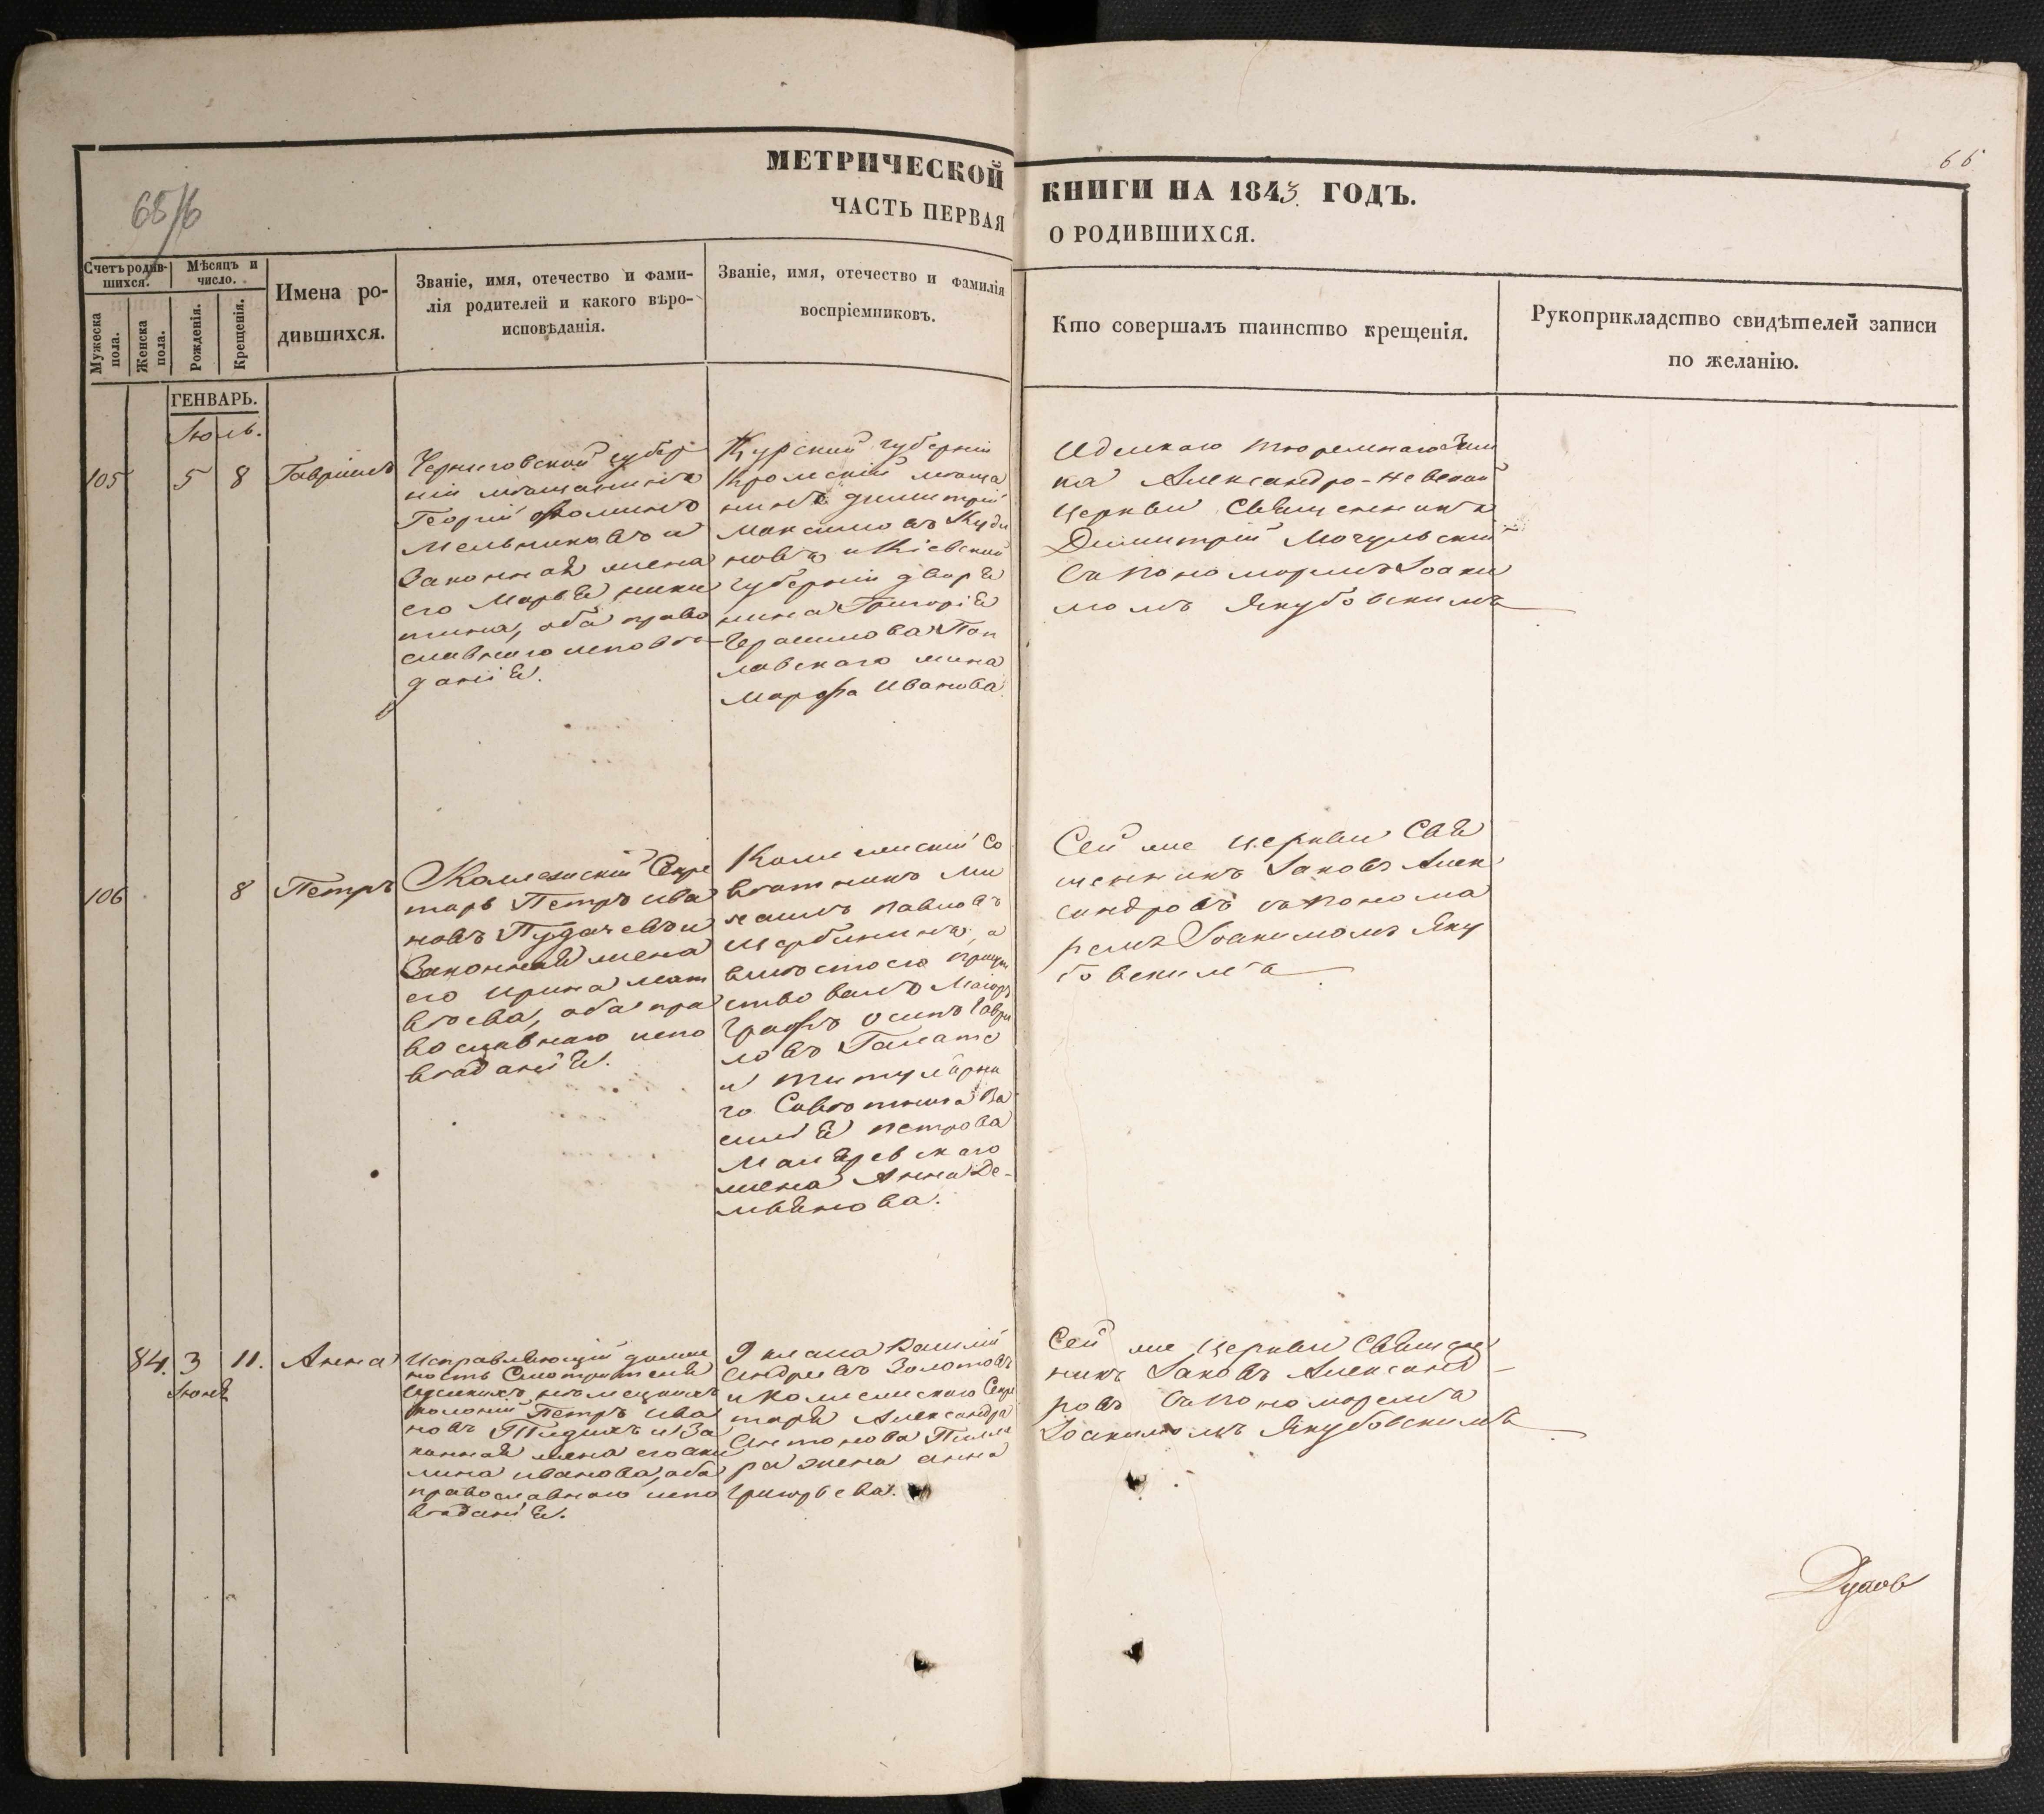 МЕТРИЧЕСКОЙ
КНИГИ НА 1843 ГОДЪ.
ЧАСТЬ ПЕРВАЯ
О РОДИВШИХСЯ.
66
Счетъ родив-
шихся.
Мужеска
пола.
Женска
пола.
Мѣсяцъ и
число.
Рожденія.
Крещенія.
Имена ро-
дившихся.
Званіе, имя, отечество и фами-
лія родителей и какого вѣро-
исповѣданія.
Званіе, имя, отечество и фамилія
воспріемниковъ.
Кто совершалъ таинство крещенія.
Рукоприкладство свидѣтелей записи
по желанію.
ГЕНВАРЬ.
Іюль.
105
5
8
Гавріилъ
Черниговской губер
ніи мѣщанинъ
Георгій Фоминъ
Мельниковъ и
законная жена
его Марья Ники
тина, оба право
славнаго исповѣ-
данія.
Курской губерніи
мѣща
нинъ Димитрій
Максимовъ
и Кіевской
губерніи дворя
нина Григорія
Герасимова Поп
лавскаго жена
Марфа Иванова
Одескаго тюремнаго Зам
ка Александро-Невской
церкви Священникъ
Димитрій Мочульскій
съ пономаремъ Іоаки
момъ Якубовскимъ
106
8
Петръ
Коллежскій Секре
тарь Петръ Ива
новъ Пугачевъ и
законная жена
его Ирина Мат
вѣева, оба пра
вославнаго испо
вѣданія.
Колежскій Со
вѣтникъ Ми
хаилъ Павловъ
Щербининъ, а
вмѣсто его присут
ствовалъ Маіоръ
Графъ Осипъ Гаври
ловъ Галате
и титулярна
го Совѣтника Ва
силія Петрова
жена Анна Де-
мьянова.
Сей же церкви Свя
щенникъ Іаковъ Алек
сандровъ съ понома
ремъ Іоакимомъ Яку
бовскимъ
84.
3
Іюня
11.
Анна
Исправляющій долж
ность Смотрителя
Одескихъ нѣмецкихъ
колоній Петръ Ива
новъ и За
конная жена его Аки
лина Иванова, оба
православнаго испо
вѣданія.
9 класа Василій
Андреевъ Золотовъ
и Колежскаго Секре
таря Александра
Антонова
ра жена Анна
Григорьева.
Сей же церкви Священ
никъ Іаковъ Александ-
ровъ съ пономаремъ
Іоакимомъ Якубовскимъ